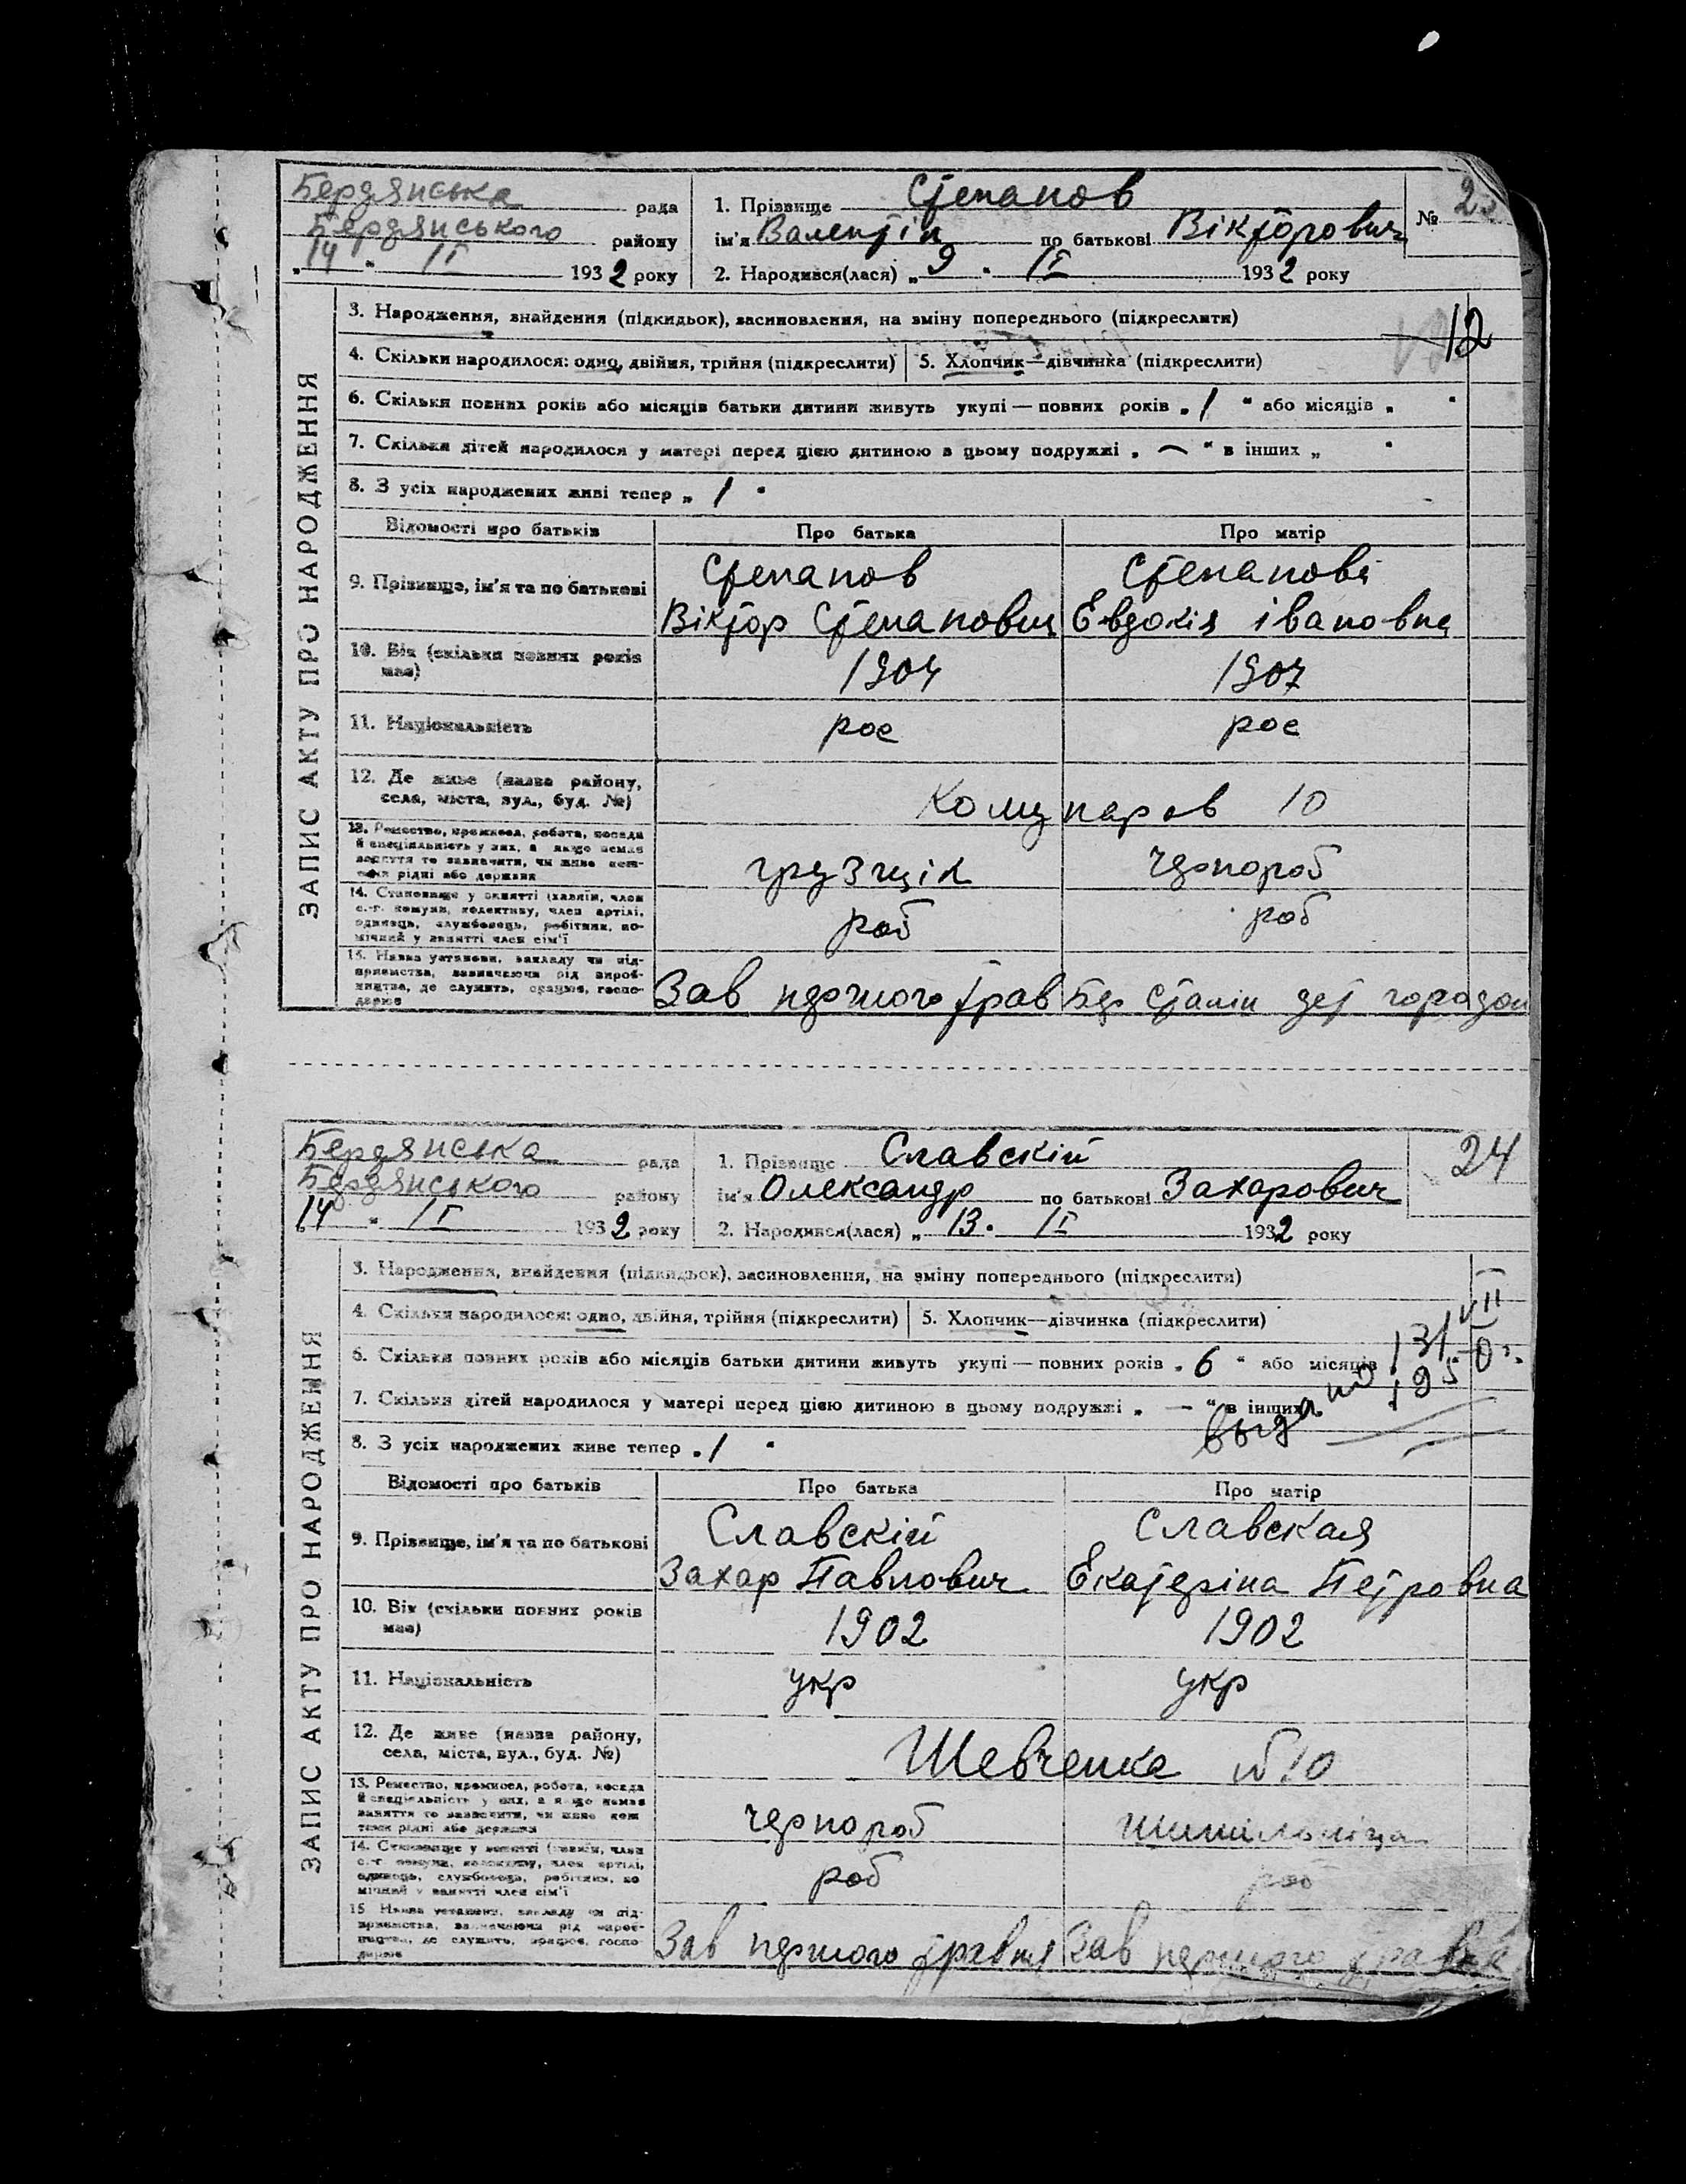 Бердянська рада
Бердянського району
„14" І 1932 року
1. Прізвище Степанов
ім'я Валентін по батькові Вікторович
2. Народився(лася) „9" І 1932 року
№ 23
12
ЗАПИС АКТУ ПРО НАРОДЖЕННЯ
3. Народження, знайдення (підкидьок), засиновлення, на зміну попереднього (підкреслити)
4. Скільки народилося: одно, двійня, трійня (підкреслити) 5. Хлопчик—дівчинка (підкреслити)
6. Скільки повних років або місяців батьки дитини живуть укупі — повних років „1" або місяців „ "
7. Скільки дітей народилося у матері перед цією дитиною в цьому подружжі „—" в інших „ "
8. З усіх народжених живі тепер „1"
Відомості про батьків Про батька Про матір
9. Прізвище, ім'я та по батькові Степанов Степанова
Віктор Степанович Евдокія івановна
10. Вік (скільки повних років має) 1904 1907
11. Національність рос рос
12. Де живе (назва району,
села, міста, вул., буд. №) Комунаров 10
13. Ремество, промисел, робота, посада
й спеціальність у них, а якщо немає
заняття то зазначити, чи живе
рідні або держава грузчік чорнороб
14. Становище у занятті (хазяїн, член
с.-г. комуни, колективу, член артілі,
одинець, службовець, робітник, по-
мічний у занятті член сім'ї роб роб
15. Назва установи, закладу чи під-
приємства, зазначаючи рід вироб-
ництва, де служить, працює, госпо-
дарює Зав першого трав Сталін дет
Бердянська рада
Бердянського району
14 " І 1932 року
1. Прізвище Славскій
ім'я Олександр по батькові Захарович
2. Народився(лася) „13" І 1932 року
24
ЗАПИС АКТУ ПРО НАРОДЖЕННЯ
3. Народження, знайдення (підкидьок), засиновлення, на зміну попереднього (підкреслити)
4. Скільки народилося: одно, двійня, трійня (підкреслити) 5. Хлопчик—дівчинка (підкреслити)
6. Скільки повних років або місяців батьки дитини живуть укупі — повних років „6" або місяців
7. Скільки дітей народилося у матері перед цією дитиною в цьому подружжі „—" в інших
выдано 13/VII 1950г.
8. З усіх народжених живе тепер „1"
Відомості про батьків Про батька Про матір
9. Прізвище, ім'я та по батькові Славскій Славская
Захар Павлович Екатеріна Петровна
10. Вік (скільки повних років має) 1902 1902
11. Національність укр укр
12. Де живе (назва району,
села, міста, вул., буд. №) Шевченка №10
13. Ремество, промисел, робота, посада
й спеціальність у них, а якщо немає
заняття то зазначити, чи живе
рідні або держава чернороб
14. Становище у занятті (хазяїн, член
с.-г. комуни, колективу, член артілі,
одинець, службовець, робітник, по-
мічний у занятті член сім'ї роб роб
15. Назва установи, закладу чи під-
приємства, зазначаючи рід вироб-
ництва, де служить, працює, госпо-
дарює Зав першого травня Зав першого травня